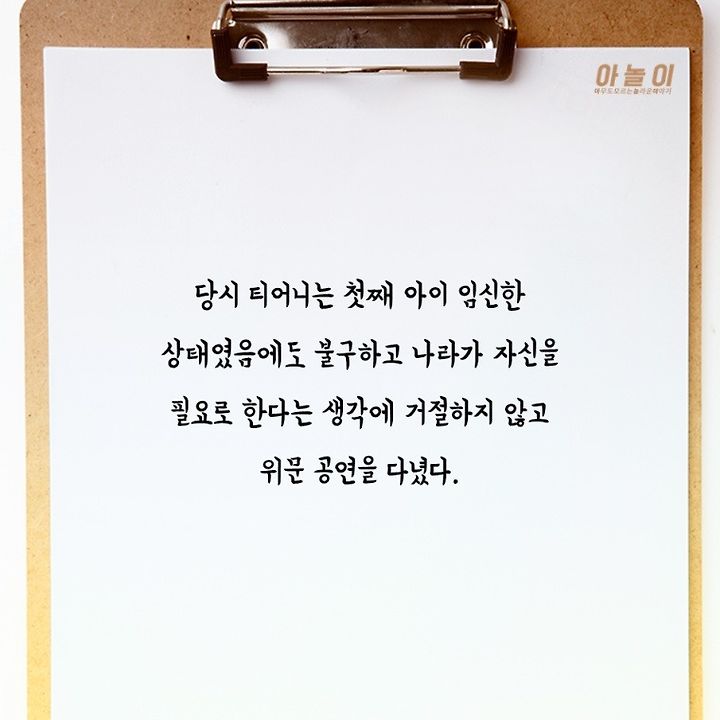 아놀이
아무도모르는놀라운이야기
당시 티어니는 첫째 아이 임신한
상태였음에도 불구하고 나라가 자신을
필요로 한다는 생각에 거절하지 않고
위문 공연을 다녔다.